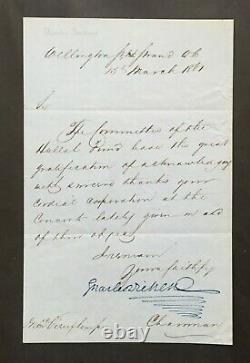 Wellington St Strand
15th March 1861
Sir
The Committee of the
Fund have the great
gratification of acknowledging
with sincere thanks your
cordial cooperation at the
Concert lately given in aid
of their object
I remain
Yours faithfully
Charles Dickens
Chairman